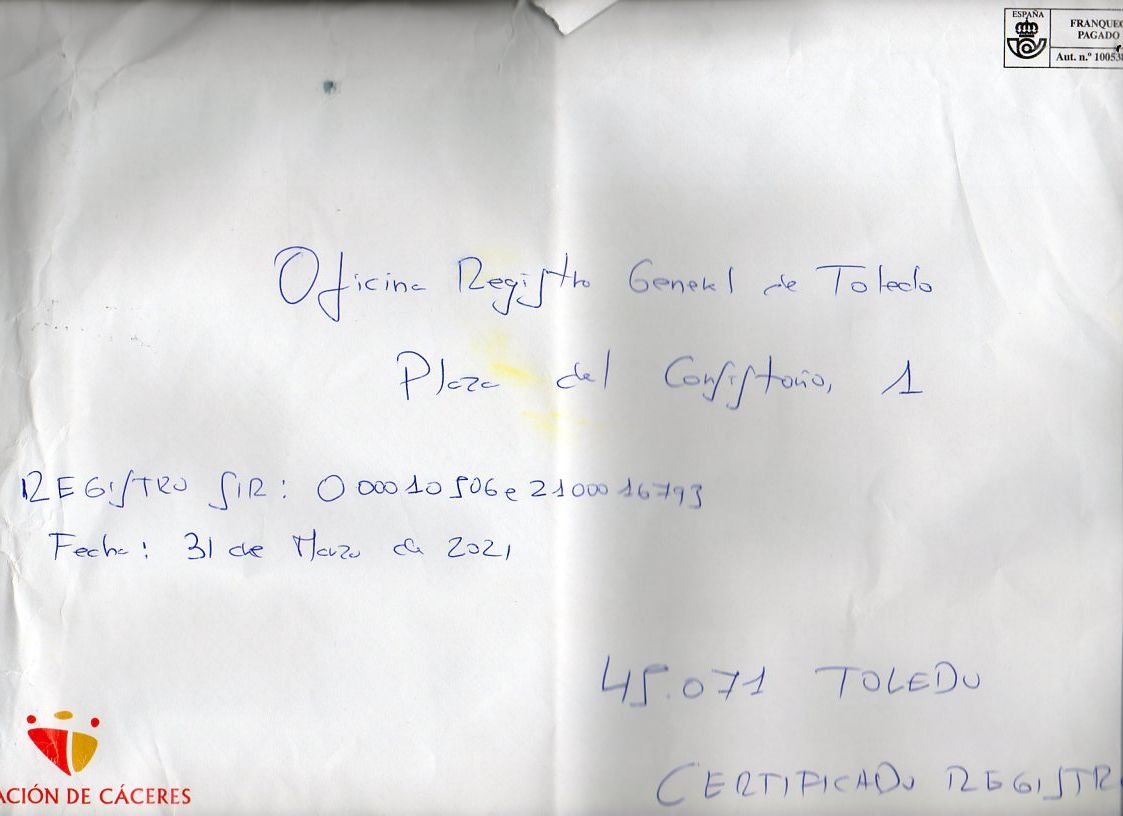 ESPAÑA
FRANQUEO
PAGADO
Aut. n.º 10053
Oficina Registro General de Toledo
Plaza del Consistorio, 1
REGISTRO SIR: O00010506e2100016793
Fecha: 31 de Marzo de 2021
45.071 TOLEDO
ACIÓN DE CÁCERES
CERTIFICADO REGISTR